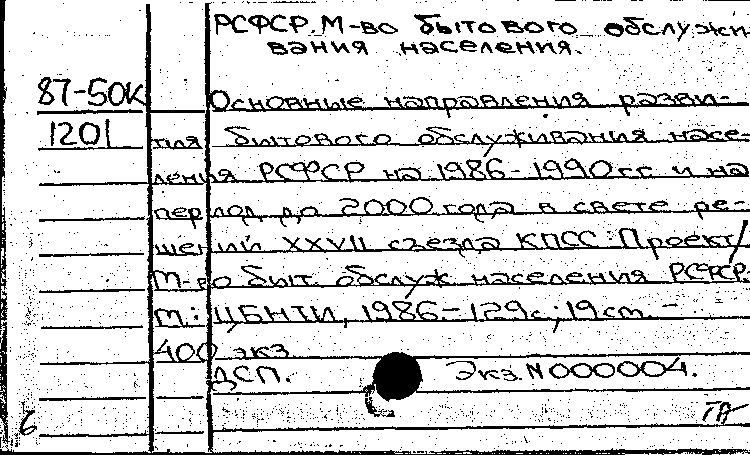 РСФСР. М-во бытового обслужи-
вания населения.
87-50К
Основные направления разви-
1201
тия бытового обслуживания насе-
ления РСФСР на 1986-1990гг и на
период до 2000 года в свете ре-
шений XXVII съезда КПСС: Проект/
М-во быт. обслуж населения РСФСР.-
М.: ЦБНТИ, 1986.-129с; 19см. -
400 экз.
ДСП. Экз. N000004.
6